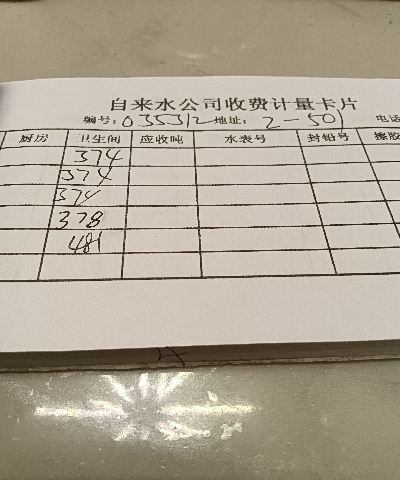 自来水公司收费计量卡片
编号:035312地址:2-501 电话
厨房 卫生间 应收吨 水表号 封铅号 橡胶
374
374
374
378
481